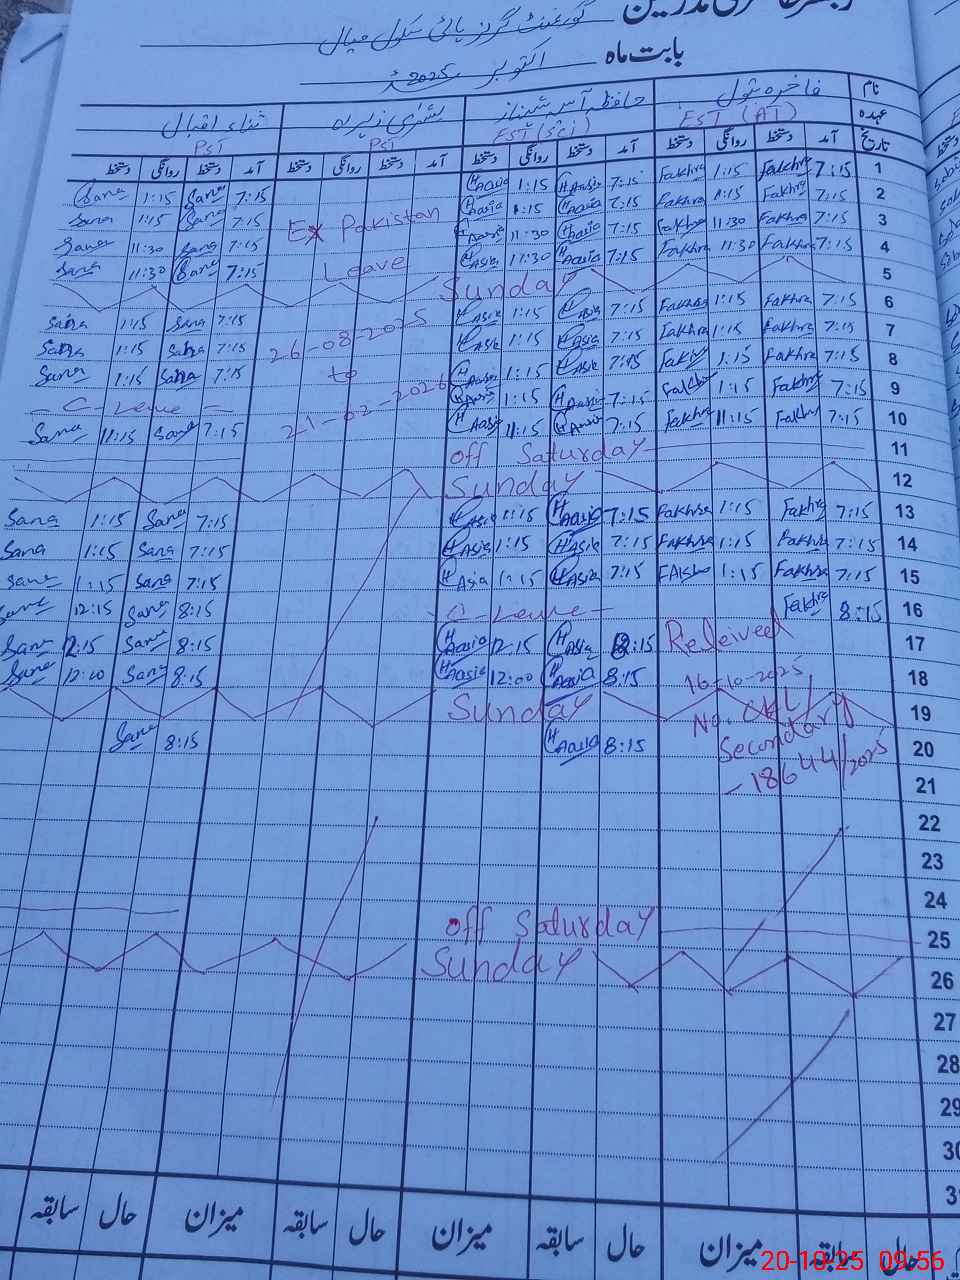 گورنمنٹ گرلز ہائی سکول میال
بابت ماہ اکتوبر 2025ء
نام فاخرہ بتول حافظہ آسیہ شہناز بشریٰ زہرہ ثناء اقبال
عہدہ EST (AT) EST (Sci) PST PST
تاریخ آمد دستخط روانگی دستخط آمد دستخط روانگی دستخط آمد دستخط روانگی دستخط آمد دستخط روانگی دستخط
1 7:15 Fakhra 1:15 Fakhra 7:15 H Aasia 1:15 H Aasia 7:15 Sana 1:15 Sana
2 7:15 Fakhra 1:15 Fakhra 7:15 H Aasia 1:15 H Aasia 7:15 Sana 1:15 Sana
Ex Pakistan
3 7:15 Fakhra 11:30 Fakhra 7:15 H Aasia 11:30 H Aasia 7:15 Sana 11:30 Sana
4 7:15 Fakhra 11:30 Fakhra 7:15 H Aasia 11:30 H Asia 7:15 Sana 11:30 Sana
Leave
5 Sunday
6 7:15 Fakhra 1:15 Fakhra 7:15 H Asia 1:15 H Asia 7:15 Sana 1:15 Sana
26-08-2025
7 7:15 Fakhra 1:15 Fakhra 7:15 H Asia 1:15 H Asia 7:15 Sana 1:15 Sana
to
8 7:15 Fakhra 1:15 Fakhra 7:15 H Asia 1:15 H Aasia 7:15 Sana 1:15 Sana
21-02-2026
9 7:15 Fakhra 1:15 Fakhra 7:15 H Aasia 1:15 H Aasia - C-Leave -
10 7:15 Fakhra 11:15 Fakhra 7:15 H Aasia 11:15 H Aasia 7:15 Sana 11:15 Sana
11 off Saturday
12 Sunday
13 7:15 Fakhra 1:15 Fakhra 7:15 H Aasia 1:15 H Asia 7:15 Sana 1:15 Sana
14 7:15 Fakhra 1:15 Fakhra 7:15 H Asia 1:15 H Asia 7:15 Sana 1:15 Sana
15 7:15 Fakhra 1:15 7:15 H Asia 1:15 H Asia 7:15 Sana 1:15 Sana
16 8:15 Fakhra - C-Leave - 8:15 Sana 12:15 Sana
17 Releived 8:15 H Asia 12:15 H Aasia 8:15 Sana 12:15 Sana
18 16-10-2025 8:15 H Aasia 12:00 H Aasia 8:15 Sana 12:00 Sana
19 No. CKL/ Sunday
20 Secondary 8:15 H Aasia 8:15 Sana
21 -18644/2025
22
23
24
25 off Saturday
26 Sunday
27
28
29
30
میزان حال سابقہ میزان حال سابقہ میزان حال سابقہ
20-10-25 09:56